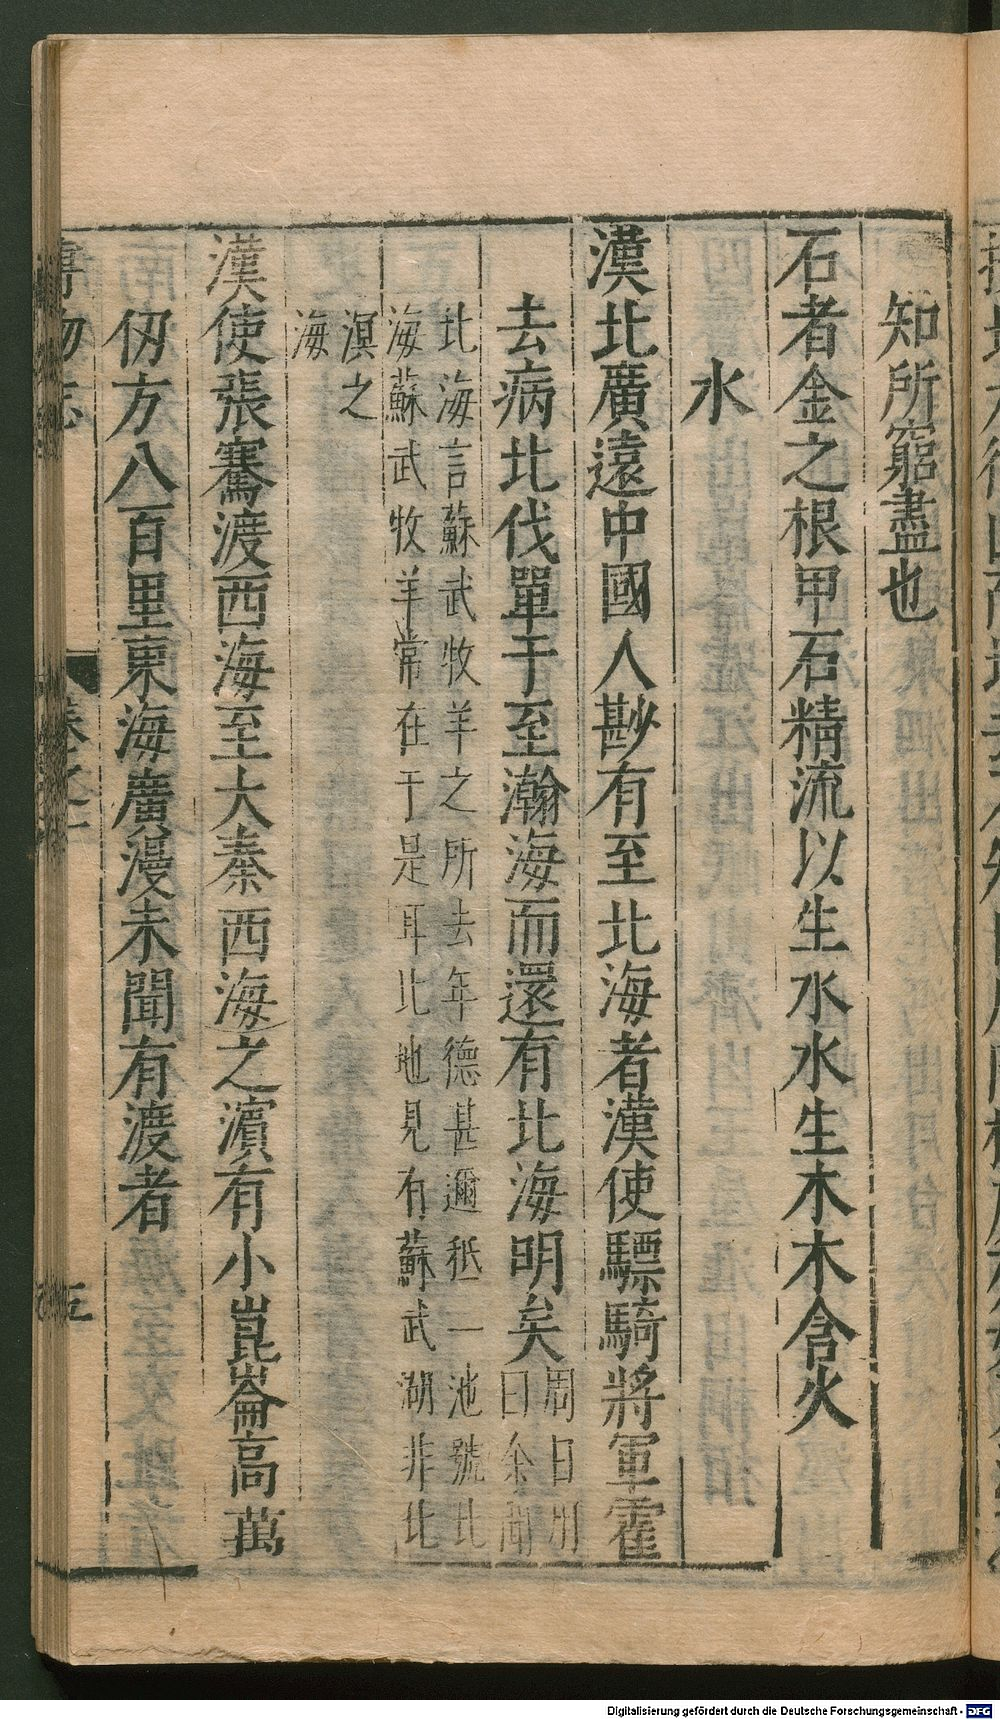 知所窮盡也
石者金之根甲石精流以生水水生木木含火
水
漢北廣遠中國人尠有至北海者漢使驃騎將軍霍
去病北伐單于至瀚海而還有北海明矣
周日用
曰余聞
北海言蘇武牧羊之所去年德甚邇秪一池號北
海蘇武牧羊常在于是耳此地見有蘇武湖非北
溟之
海
漢使張騫渡西海至大秦西海之濱有小崑崙高萬
仞方八百里東海廣漫未聞有渡者
博物志
卷之一
五
Digitalisierung gefördert durch die Deutsche Forschungsgemeinschaft - DFG